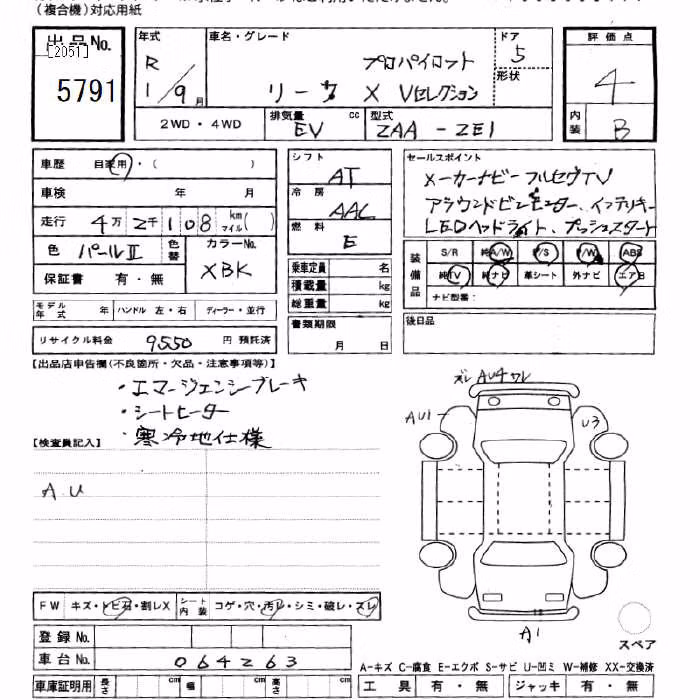 (複合機)対応用紙
出品No.
[2051]
5791
年式
R
1/9月
車名・グレード
プロパイロット
リーフ X Vセレクション
ドア
5
形状
評価点
4
内装
B
2WD・4WD
排気量 EV cc
型式 ZAA-ZE1
車歴 自家用・( )
車検 年 月
走行 4万2千108 km マイル( )
色 パールⅡ 色替
カラーNo.
XBK
保証書 有・無
シフト
AT
冷房
AAC
燃料
E
乗車定員 名
積載量 kg
総重量 kg
書類期限
月 日
セールスポイント
メーカーナビ フルセグTV
アラウンドビューモニター、インテリキー
LEDヘッドライト、プッシュスタート
装備品
S/R 純A/W P/S P/W ABS
純TV 純ナビ 革シート 外ナビ エアB
ナビ型番:
後日品
モデル年式 年 ハンドル 左・右 ディーラー・並行
リサイクル料金 9550 円 預託済
【出品店申告欄(不良箇所・欠品・注意事項等)】
・エマージェンシーブレーキ
・シートヒーター
・寒冷地仕様
【検査員記入】
A.U
ズレ AU4ワレ
AU1
U3
A1
スペア
FW キズ・トビ石・割レX
シート内装 コゲ・穴・汚レ・シミ・破レ・スレ
登録No.
車台No. 064263
車庫証明用 長さ cm 幅 cm 高さ cm
A-キズ C-腐食 E-エクボ S-サビ U-凹ミ W-補修 XX-交換済
工具 有・無 ジャッキ 有・無